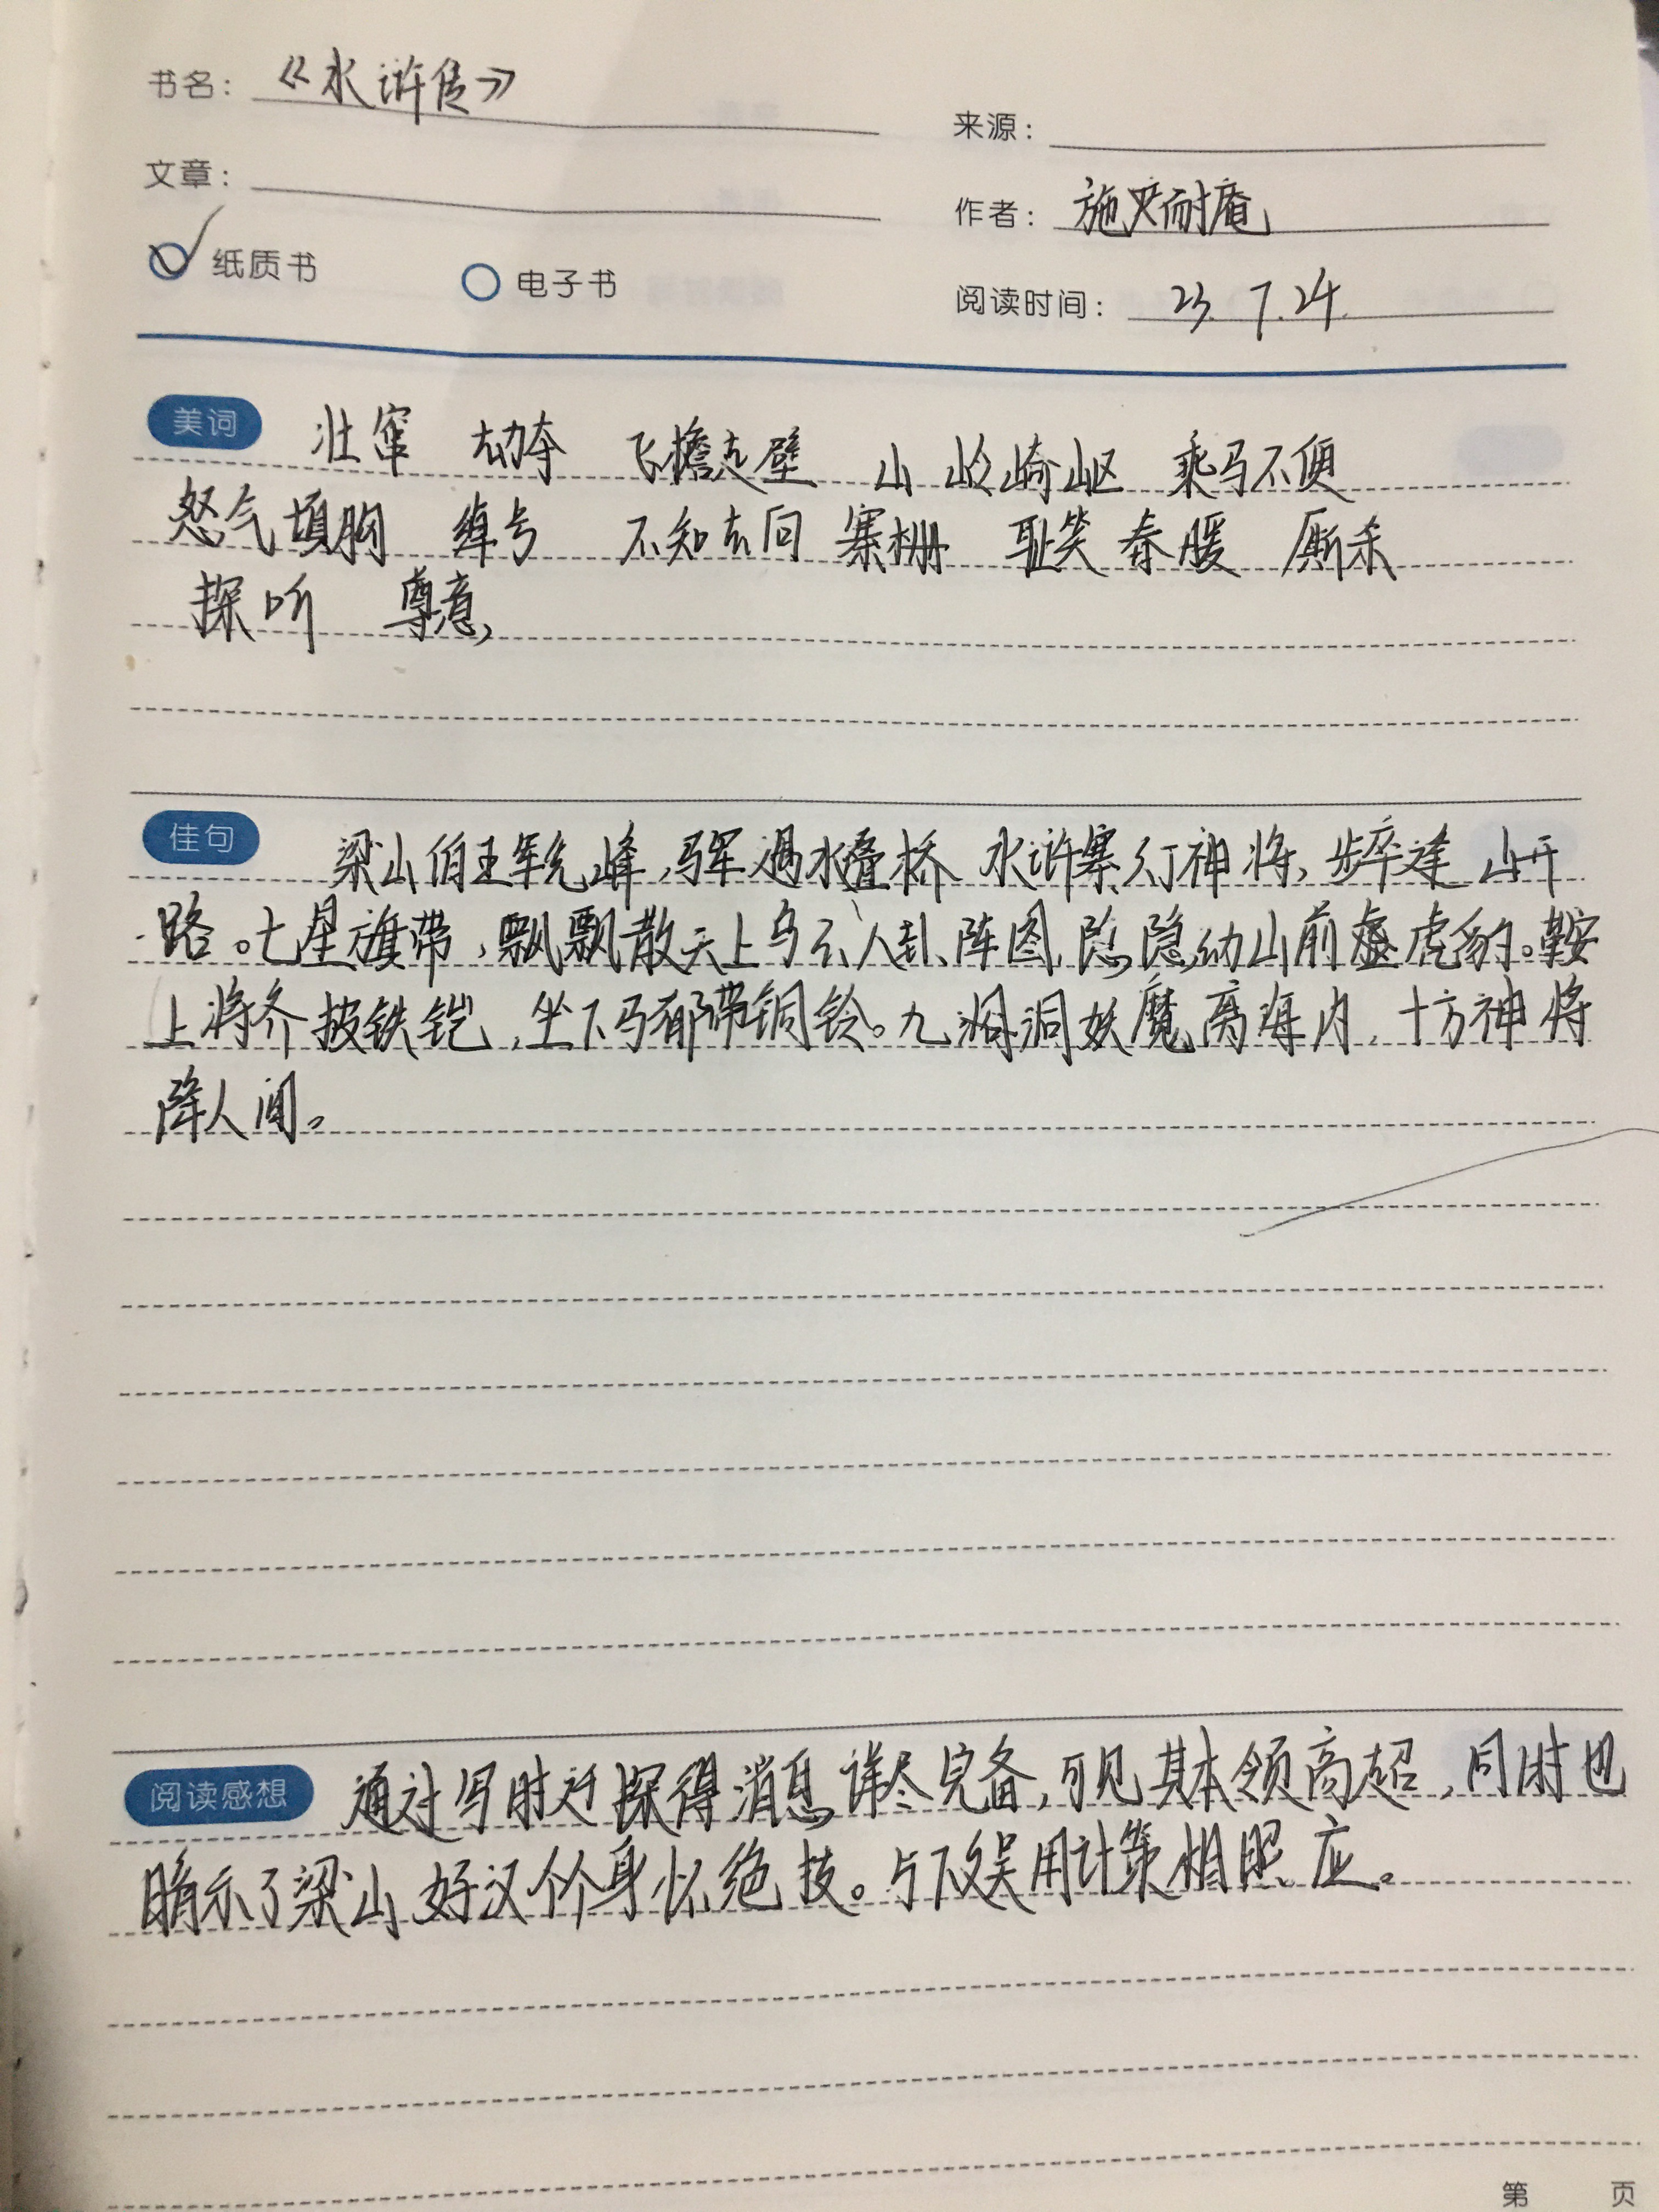 书名：《水浒传》
来源：
文章：
作者：施耐庵
纸质书 电子书
阅读时间：23.7.24
美词 壮 窜 劫夺 飞檐走壁 山岭崎岖 乘马不便
怒气填胸 绰号 不知去向 寨栅 耻笑 春暖 厮杀
探听 尊意
佳句 梁山伯王军先峰,马军遇水叠桥 水浒寨行神将,步卒逢山开
路。七星旗带,飘飘散天上乌云,八卦阵图,隐隐动山前虎豹。鞍
上将齐披铁铠,坐下马都带铜铃。九洞妖魔离海内,十方神将
降人间。
阅读感想 通过写时迁探得消息详尽完备,可见其本领高超,同时也
暗示了梁山好汉个个身怀绝技。与下文吴用计策相照应。
第 页